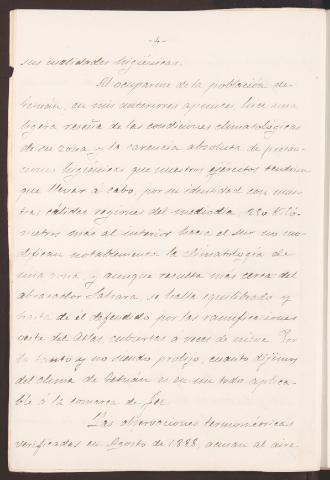 -4-
sus cualidades higiénicas.
Al ocuparme de la población de
Tetuán, en mis anteriores apuntes, hice una
ligera reseña de las condiciones climatológicas
de su zona y la carencia absoluta de precau-
ciones higiénicas que nuestros ejércitos tendrían
que llevar a cabo, por su identidad con nues-
tras cálidas regiones del mediodía. 250 Kiló-
metros más al interior hacia el sur no mo-
difican notablemente la climatología de
una zona, y aunque resulta más cerca del
abrasador Sahara, se halla equilibrado y
hasta de él defendido por las ramificaciones
del Atlas cubiertas a veces de nieve. Por
lo tanto y no siendo prolijo, cuanto dijimos
del clima de Tetuán es en un todo aplica-
ble á la comarca de Fez.
Las observaciones termométricas
verificadas en Agosto de 1888, acusan al aire